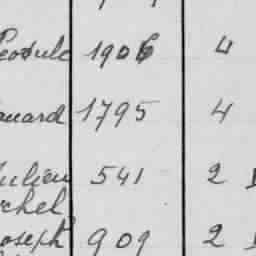 eodule 1906 4
ouard 1795 4
Julien 541 2
chel
Joseph 909 2